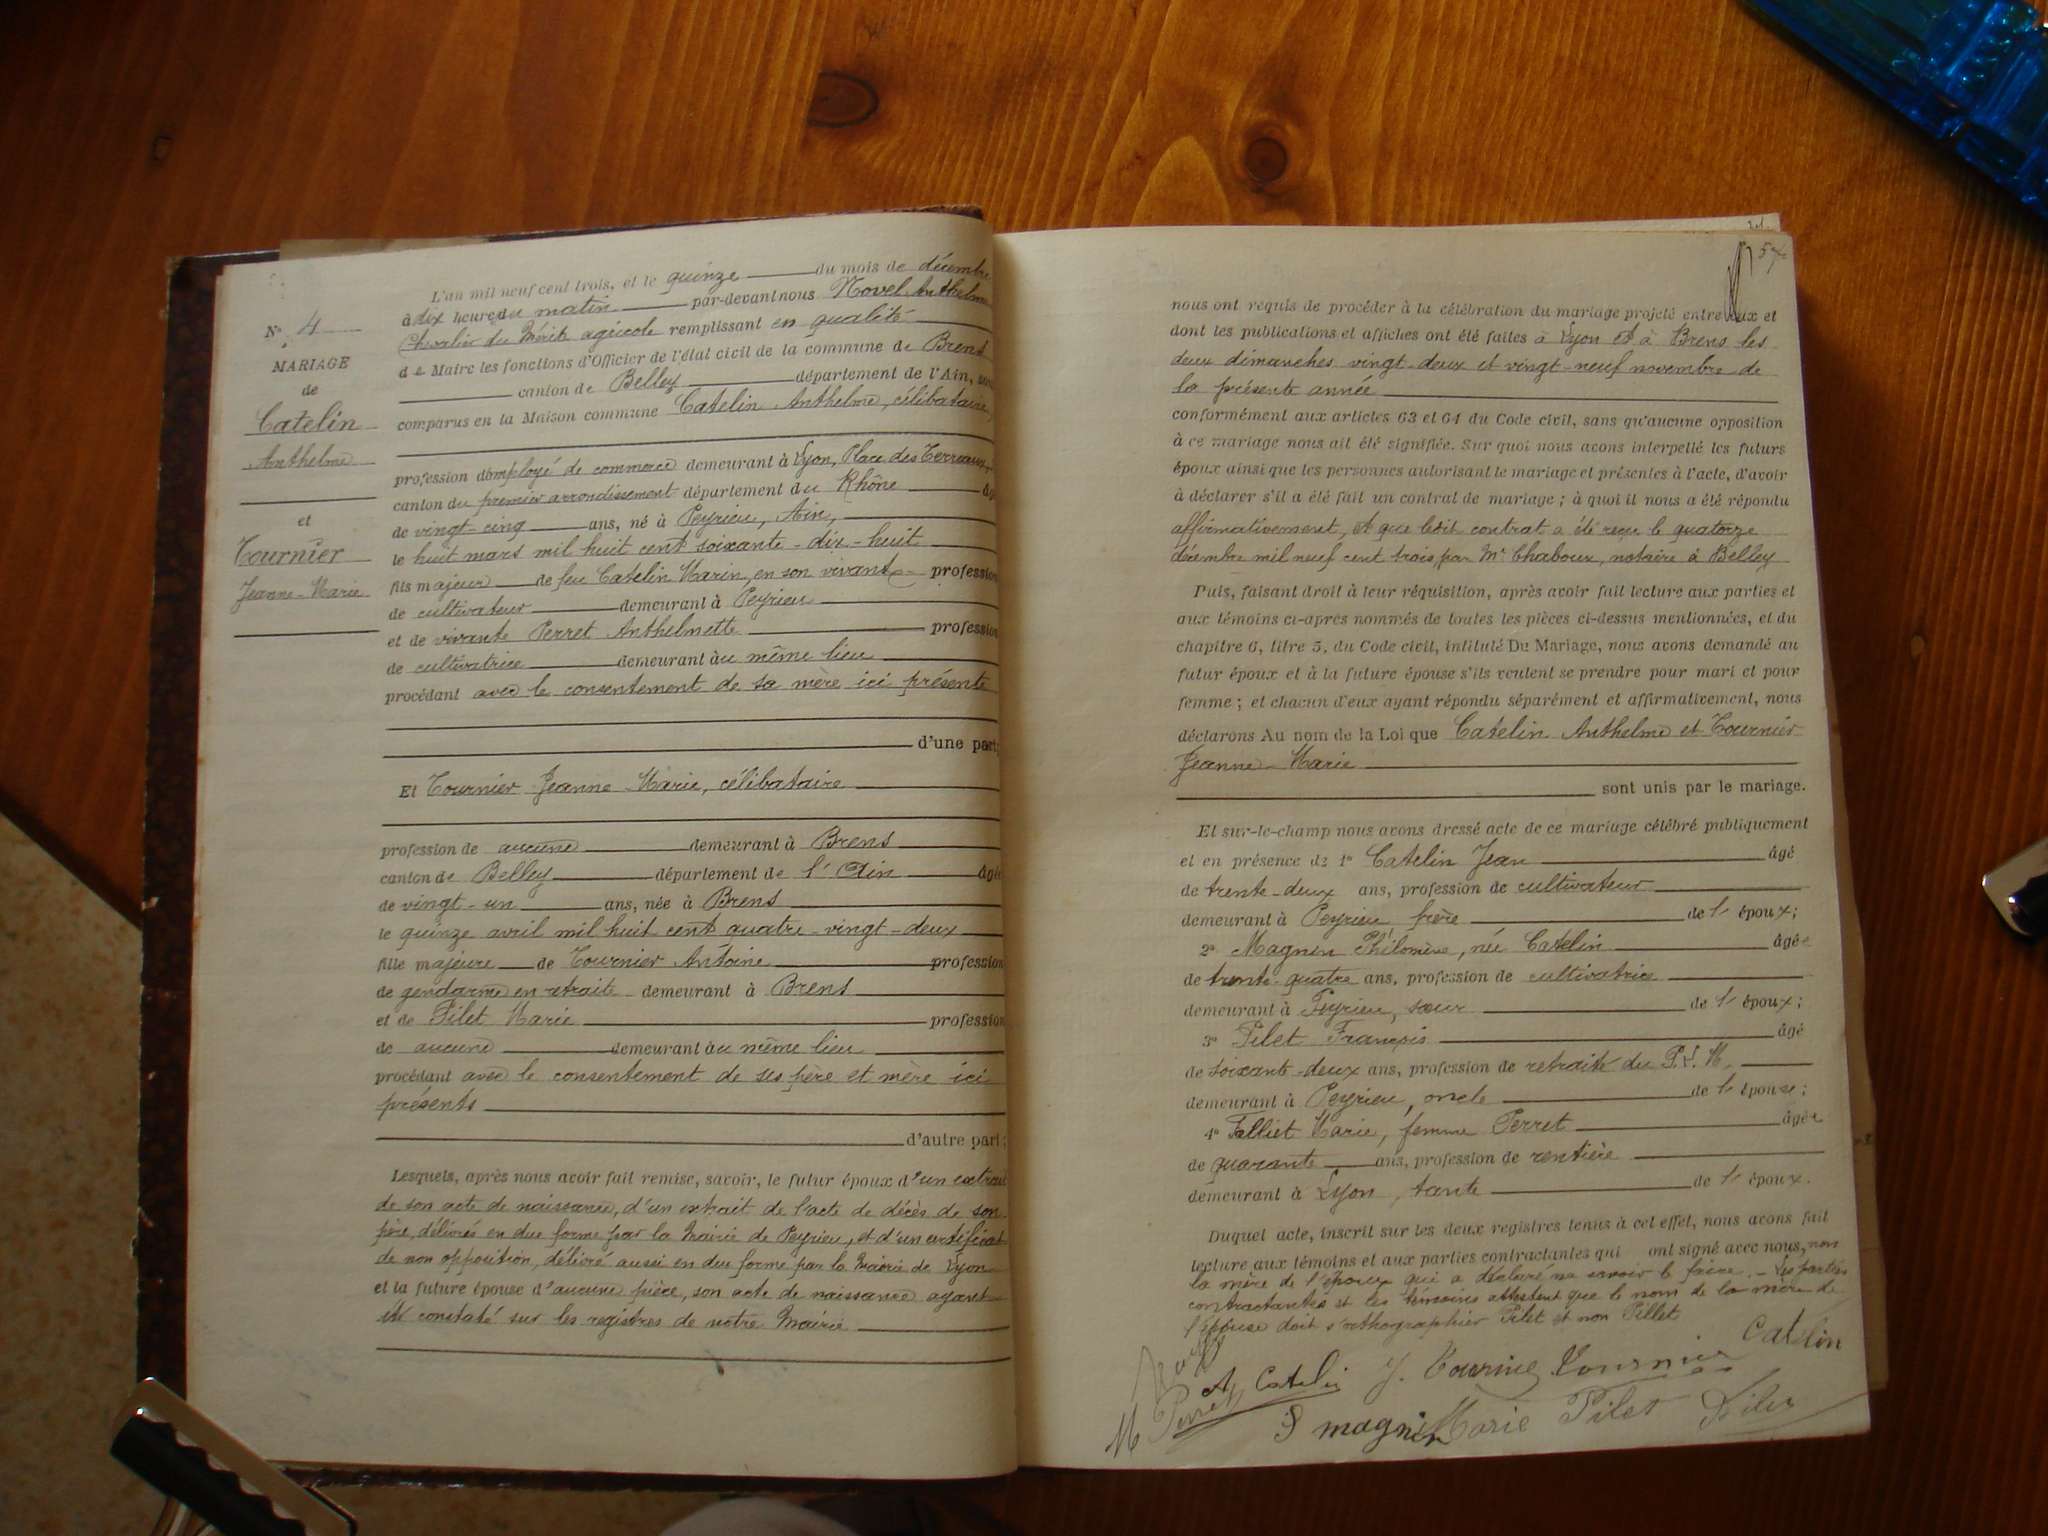 N° 4
MARIAGE
de
Catelin
Anthelme
et
Tournier
Jeanne-Marie
L'an mil neuf cent trois, et le quinze du mois de décembre
à dix heures du matin par-devant nous Novel Anthelme
Chevalier du Mérite agricole remplissant en qualité
de Maire les fonctions d'Officier de l'état civil de la commune de Brens
canton de Belley département de l'Ain, sont
comparus en la Maison commune Catelin Anthelme, célibataire,
profession d'employé de commerce demeurant à Lyon, Place des Terreaux,
canton du premier arrondissement département du Rhône âgé
de vingt-cinq ans, né à Peyrieu, Ain,
le huit mars mil huit cent soixante-dix-huit
fils majeur de feu Catelin Marin, en son vivant profession
de cultivateur demeurant à Peyrieu
et de vivante Perret Anthelmette profession
de cultivatrice demeurant au même lieu
procédant avec le consentement de sa mère ici présente
d'une part;
Et Tournier Jeanne-Marie, célibataire
profession de aucune demeurant à Brens
canton de Belley département de l'Ain âgée
de vingt-un ans, née à Brens
le quinze avril mil huit cent quatre-vingt-deux
fille majeure de Tournier Antoine profession
de gendarme en retraite demeurant à Brens
et de Pilet Marie profession
de aucune demeurant au même lieu
procédant avec le consentement de ses père et mère ici
présents
d'autre part;
Lesquels, après nous avoir fait remise, savoir, le futur époux d'un extrait
de son acte de naissance, d'un extrait de l'acte de décès de son
père, délivrés en due forme par la Mairie de Peyrieu, et d'un certificat
de non opposition, délivré aussi en due forme par la Mairie de Lyon
et la future épouse d'aucune pièce, son acte de naissance ayant
été constaté sur les registres de notre Mairie
57
nous ont requis de procéder à la célébration du mariage projeté entre eux et
dont les publications et affiches ont été faites à Lyon et à Brens les
deux dimanches vingt-deux et vingt-neuf novembre de
la présente année
conformément aux articles 63 et 64 du Code civil, sans qu'aucune opposition
à ce mariage nous ait été signifiée. Sur quoi nous avons interpellé les futurs
époux ainsi que les personnes autorisant le mariage et présentes à l'acte, d'avoir
à déclarer s'il a été fait un contrat de mariage; à quoi il nous a été répondu
affirmativement, et que ledit contrat a été reçu le quatorze
décembre mil neuf cent trois par Me Chaboux, notaire à Belley
Puis, faisant droit à leur réquisition, après avoir fait lecture aux parties et
aux témoins ci-après nommés de toutes les pièces ci-dessus mentionnées, et du
chapitre 6, titre 5, du Code civil, intitulé Du Mariage, nous avons demandé au
futur époux et à la future épouse s'ils veulent se prendre pour mari et pour
femme; et chacun d'eux ayant répondu séparément et affirmativement, nous
déclarons Au nom de la Loi que Catelin Anthelme et Tournier
Jeanne-Marie
sont unis par le mariage.
Et sur-le-champ nous avons dressé acte de ce mariage célébré publiquement
et en présence de 1° Catelin Jean âgé
de trente-deux ans, profession de cultivateur
demeurant à Peyrieu, frère de l'époux;
2° Magnin Philomène, née Catelin âgée
de trente-quatre ans, profession de cultivatrice
demeurant à Peyrieu, sœur de l'époux;
3° Pilet François âgé
de soixante-deux ans, profession de retraité du P.L.M.
demeurant à Peyrieu, oncle de l'épouse;
4° Falliet Marie, femme Perret âgée
de quarante ans, profession de rentière
demeurant à Lyon, tante de l'époux.
Duquel acte, inscrit sur les deux registres tenus à cet effet, nous avons fait
lecture aux témoins et aux parties contractantes qui ont signé avec nous, non
la mère de l'époux qui a déclaré ne savoir le faire. - Les parties
contractantes et les témoins attestent que le nom de la mère de
l'épouse doit s'orthographier Pilet et non Pillet
Catelin
A Catelin J. Tournier Tournier
M Perret
P magnin Marie Pilet Pilet